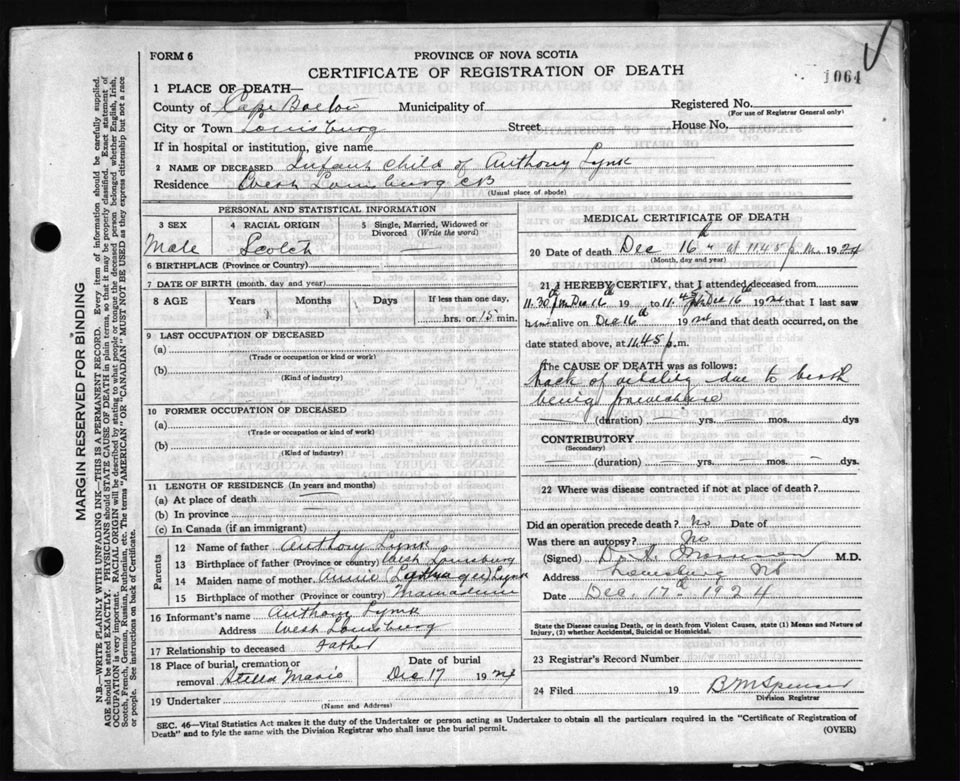 FORM 6
PROVINCE OF NOVA SCOTIA
CERTIFICATE OF REGISTRATION OF DEATH
1064
1 PLACE OF DEATH—
County of Cape Breton Municipality of Registered No.
(For use of Registrar General only)
City or Town Louisburg Street House No.
If in hospital or institution, give name
2 NAME OF DECEASED Infant child of Anthony Lynk
Residence West Louisburg CB
(Usual place of abode)
PERSONAL AND STATISTICAL INFORMATION
3 SEX
Male
4 RACIAL ORIGIN
Scotch
5 Single, Married, Widowed or Divorced (Write the word)
6 BIRTHPLACE (Province or Country)
7 DATE OF BIRTH (month, day and year)
8 AGE Years Months Days If less than one day,
hrs. or 15 min.
9 LAST OCCUPATION OF DECEASED
(a)
(Trade or occupation or kind or work)
(b)
(Kind of industry)
10 FORMER OCCUPATION OF DECEASED
(a)
(Trade or occupation or kind of work)
(b)
(Kind of industry)
11 LENGTH OF RESIDENCE (In years and months)
(a) At place of death
(b) In province
(c) In Canada (if an immigrant)
Parents
12 Name of father Anthony Lynk
13 Birthplace of father (Province or country) West Louisburg
14 Maiden name of mother Annie Lynk
15 Birthplace of mother (Province or country)
16 Informant's name Anthony Lynk
Address West Louisburg
17 Relationship to deceased Father
18 Place of burial, cremation or removal Stella Maris
Date of burial
Dec 17 1924
19 Undertaker
(Name and Address)
MEDICAL CERTIFICATE OF DEATH
20 Date of death Dec 16th at 11.45 p.m. 1924
(Month, day and year)
21 I HEREBY CERTIFY, that I attended deceased from
11.30 pm Dec 16th 19 to 11.45 pm Dec 16th 1924 that I last saw
him alive on Dec 16th 1924 and that death occurred, on the
date stated above, at 11.45 p.m.
The CAUSE OF DEATH was as follows:
Lack of vitality due to birth
being premature
(duration) yrs. mos. dys
CONTRIBUTORY
(Secondary)
(duration) yrs. mos. dys.
22 Where was disease contracted if not at place of death?
Did an operation precede death? No Date of
Was there an autopsy? No
(Signed) Dr M.D.
Address Louisburg NS
Date Dec. 17th 1924
State the Disease causing Death, or in death from Violent Causes, state (1) Means and Nature of
Injury, (2) whether Accidental, Suicidal or Homicidal.
23 Registrar's Record Number
24 Filed 19 B M Spencer
Division Registrar
SEC. 46—Vital Statistics Act makes it the duty of the Undertaker or person acting as Undertaker to obtain all the particulars required in the "Certificate of Registration of
Death" and to fyle the same with the Division Registrar who shall issue the burial permit.
(OVER)
MARGIN RESERVED FOR BINDING
N.B.—WRITE PLAINLY WITH UNFADING INK—THIS IS A PERMANENT RECORD. Every item of information should be carefully supplied.
AGE should be stated EXACTLY. PHYSICIANS should STATE CAUSE OF DEATH in plain terms, so that it may be properly classified. Exact statement of
OCCUPATION is very important. RACIAL ORIGIN will be described by stating to what people or tongue the deceased person belonged whether English, Irish,
Scotch, French, German, Russian, Ruthenian, etc. The terms "AMERICAN" or "CANADIAN" MUST NOT BE USED as they express citizenship but not a race
or people. See instructions on back of Certificate.